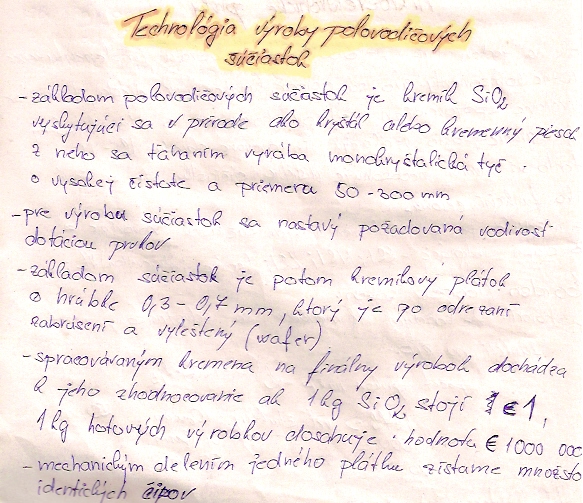 Technológia výroby polovodičových
súčiastok
- základom polovodičových súčiastok je kremík SiO2
vyskytujúci sa v prírode ako kryštál alebo kremenný piesok
z neho sa ťahaním vyrába monokryštalická tyč.
o vysokej čistote a priemere 50-300 mm
- pre výrobu súčiastok sa nastavý požadovaná vodivosť
dotáciou prvkov
- základom súčiastok je potom kremíkový plátok
o hrúbke 0,3 - 0,7 mm, ktorý je po odrezaní
zabrúsení a vyleštený (wafer)
- spracovávaným kremena na finálny výrobok dochádza
k jeho zhodnocovanie ak 1kg SiO2 stojí € 1,
1kg hotových výrobkov dosahuje hodnotu € 1000 000
- mechanickým delením jedného plátku zístame množsto
identických čipov